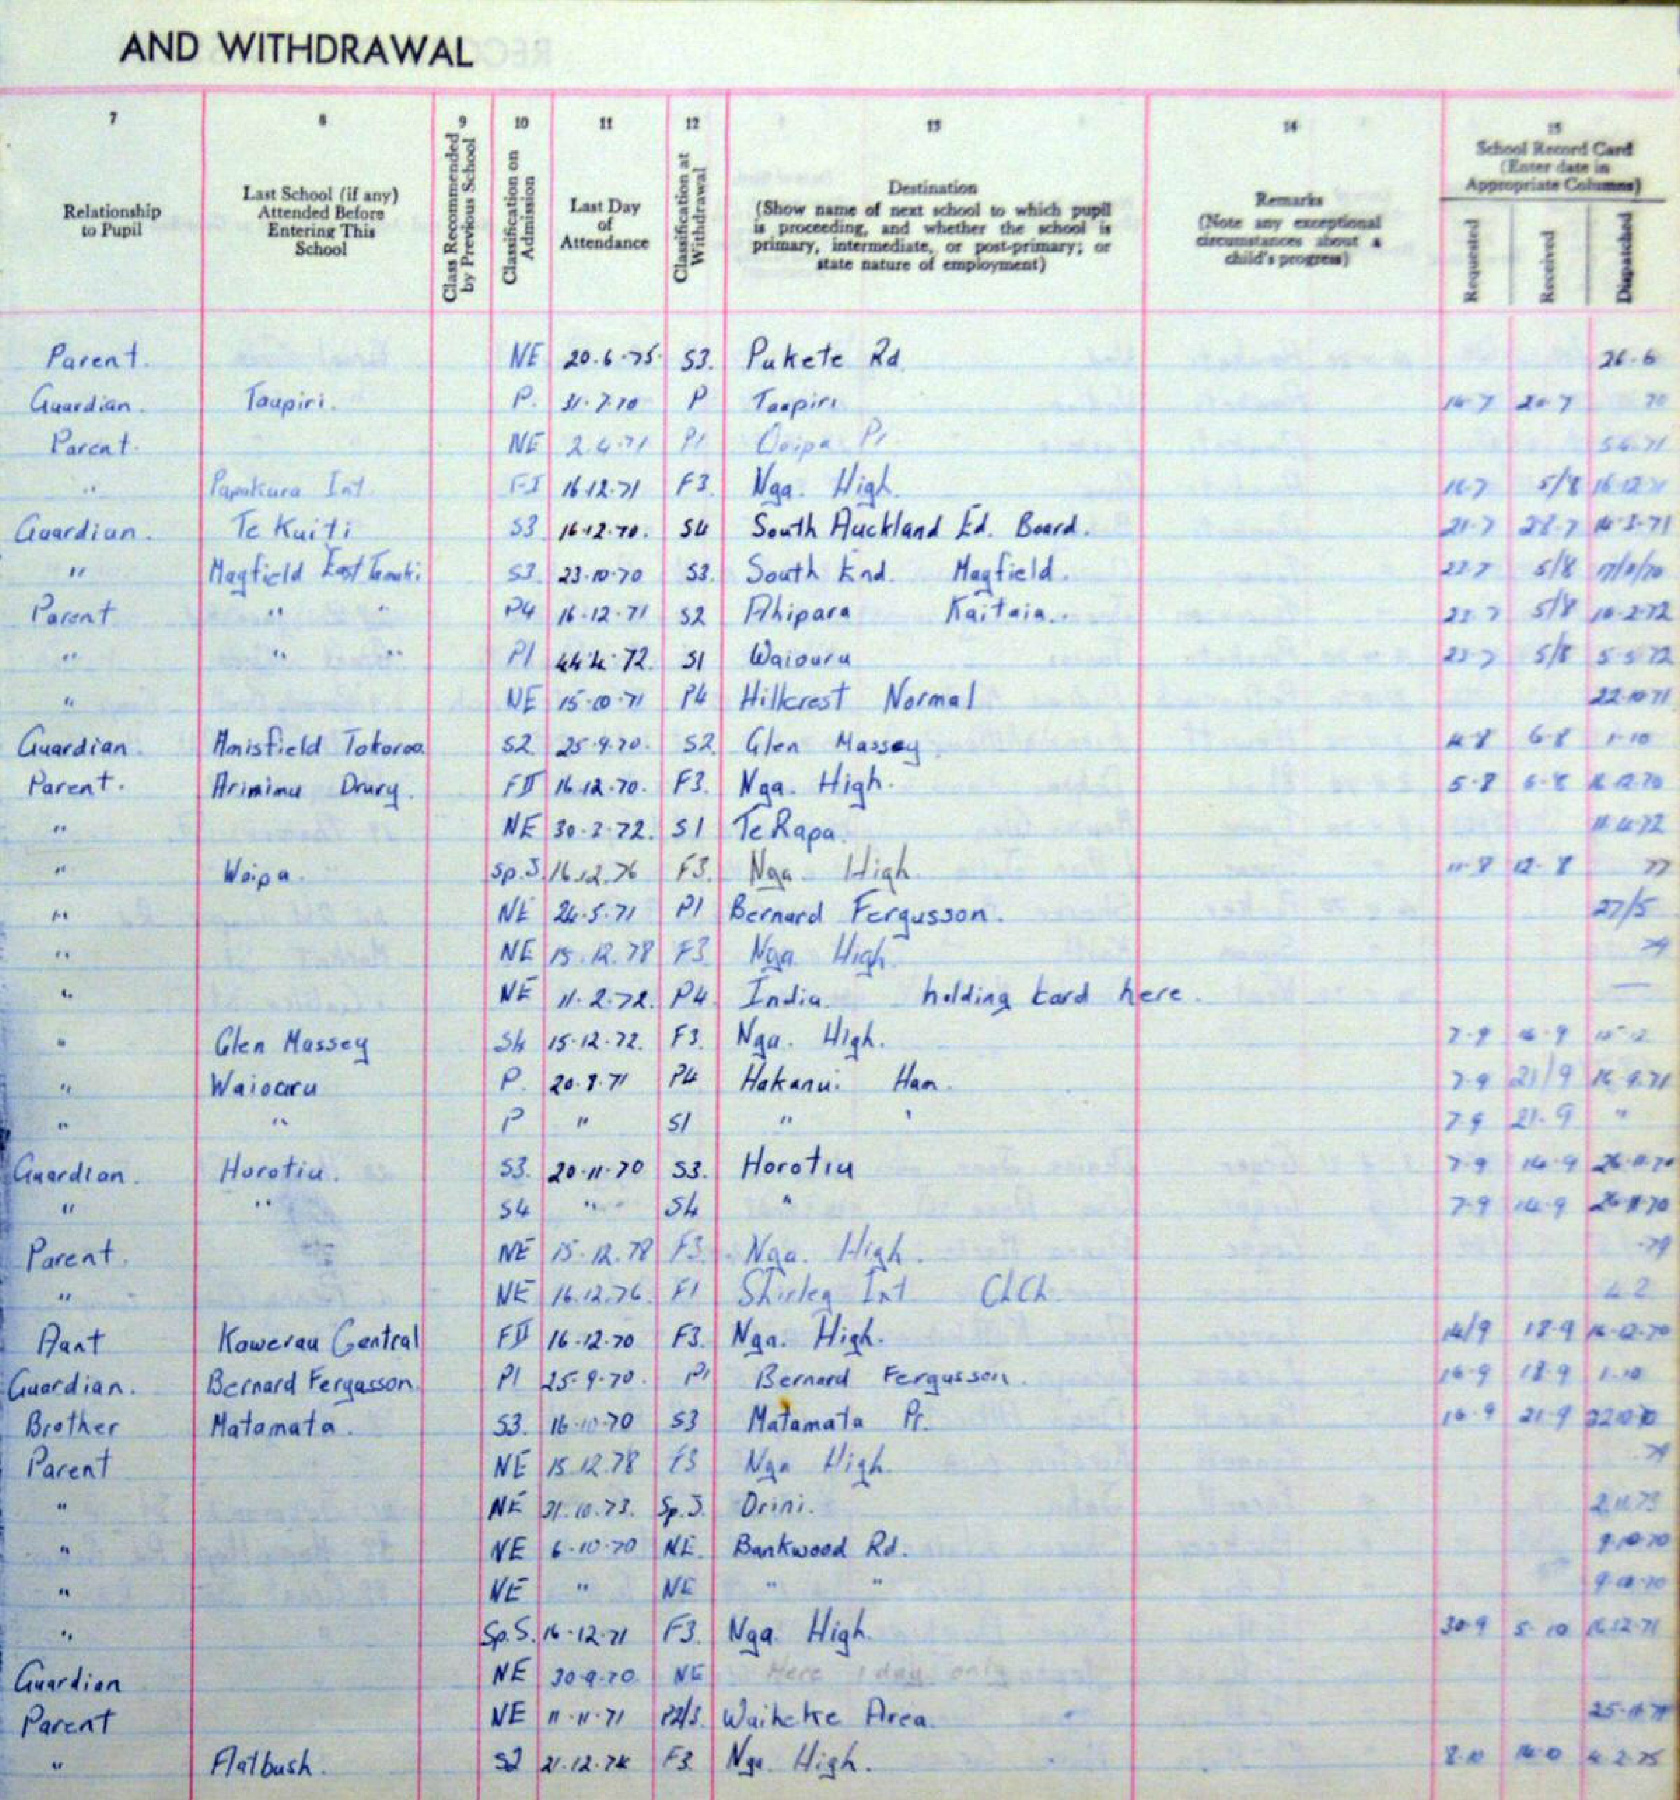 AND WITHDRAWAL
7 8 9 10 11 12 13 14 15
Relationship to Pupil
Last School (if any) Attended Before Entering This School
Class Recommended by Previous School
Classification on Admission
Last Day of Attendance
Classification at Withdrawal
Destination
(Show name of next school to which pupil is proceeding, and whether the school is primary, intermediate, or post-primary; or state nature of employment)
Remarks
(Note any exceptional circumstances about a child's progress)
School Record Card
(Enter date in Appropriate Columns)
Requested Received Dispatched
Parent. NE 20.6.75 S3. Pukete Rd 26.6
Guardian. Taupiri. P. 31.7.70 P Taupiri 20-7 70
Parent. NE 2.4.71 P1 Pr
" Papakura Int. FI 16.12.71 F3. Nga. High. 5/8 16.12.71
Guardian. Te Kuiti S3 16.12.70. S4 South Auckland Ed. Board. 21-7 28-7
" Mayfield East Tamaki S3. 23.10.70 S3. South End. Mayfield. 5/8
Parent " " P4 16.12.71 S2 Ahipara Kaitaia.. 5/8 10-2-72
" " " P1 72. S1 Waiouru 5/8 5-5-72
" NE 15.10.71 P4 Hillcrest Normal 22.10.71
Guardian. Amisfield Tokoroa S2 25.9.70. S2. Glen Massey 6-8 1-10
Parent. Drury. FII 16.12.70. F3. Nga. High. 5-8 6-8 16.12.70
" NE 30.3.72. S1 Te Rapa. 11.4.72
" Waipa. Sp.S. 16.12.76 F3. Nga. High 11-8 12-8 77
" NE 24.5.71 P1 Bernard Fergusson. 27/5
" NE 15.12.78 F3 Nga. High 79
" NE 11.2.72. P4. India. holding card here. —
" Glen Massey S4 15.12.72. F3. Nga. High. 7-9 15-12
" Waiouru P. 20.8.71 P4 Hakanui Ham. 7-9 21/9
" " P " S1 " ' 7-9 21-9 "
Guardian. Horotiu. S3. 20.11.70 S3. Horotiu 7-9 14-9 26.11.70
" " S4 " S4 " 7-9 14-9 26.11.70
Parent. NE 15.12.78 F3. Nga. High. -79
" NE 16.12.76. F1 Shirley Int ChCh
Aunt Kawerau Central FII 16.12.70 F3. Nga. High. 14/9 18-9 16-12-70
Guardian. Bernard Fergusson P1 25.9.70. P1 Bernard Fergusson. 16-9 18-9 1-10
Brother Matamata. S3. 16.10.70 S3 Matamata Pr. 16-9 21-9 22.10.70
Parent NE 15.12.78 F3 Nga High. 79
" NE 31.10.73. Sp.S. Orini. 2.11.73
" NE 6.10.70 NE. Bankwood Rd. 9.10.70
" NE " NE " " 9.10.70
" Sp.S. 16-12-71 F3. Nga. High. 30-9 5-10 16.12.71
Guardian NE 30.9.70. NE Here 1 day only
Parent NE 11.11.71 P2/3. Waiheke Area.
" Flatbush. S2 21.12.74 F3. Nga. High. 8-10 4.2.75